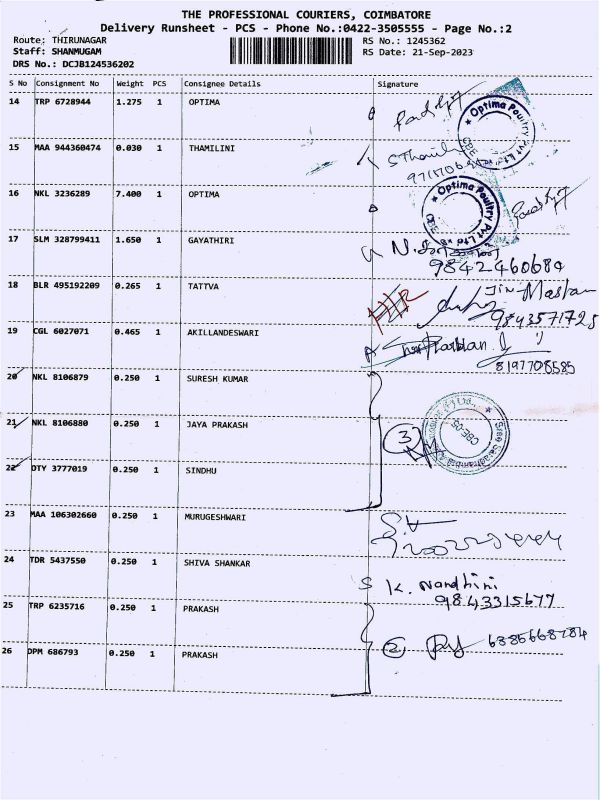 THE PROFESSIONAL COURIERS, COIMBATORE
Delivery Runsheet - PCS - Phone No.:0422-3505555 - Page No.:2
Route: THIRUNAGAR RS No.: 1245362
Staff: SHANMUGAM RS Date: 21-Sep-2023
DRS No.: DCJB124536202
S No Consignment No Weight PCS Consignee Details Signature
14 TRP 6728944 1.275 1 OPTIMA
Optima Poultry Pvt Ltd CBE
15 MAA 944360474 0.030 1 THAMILINI
16 NKL 3236289 7.400 1 OPTIMA
Optima Poultry Pvt Ltd CBE
17 SLM 328799411 1.650 1 GAYATHIRI
9842460684
18 BLR 495192209 0.265 1 TATTVA
9843571725
19 CGL 6027071 0.465 1 AKILLANDESWARI
8197708585
20 NKL 8106879 0.250 1 SURESH KUMAR
21 NKL 8106880 0.250 1 JAYA PRAKASH
3
CBE-05
22 DTY 3777019 0.250 1 SINDHU
23 MAA 106302660 0.250 1 MURUGESHWARI
24 TDR 5437550 0.250 1 SHIVA SHANKAR
K. Nandhini
9843315677
25 TRP 6235716 0.250 1 PRAKASH
26 DPM 686793 0.250 1 PRAKASH